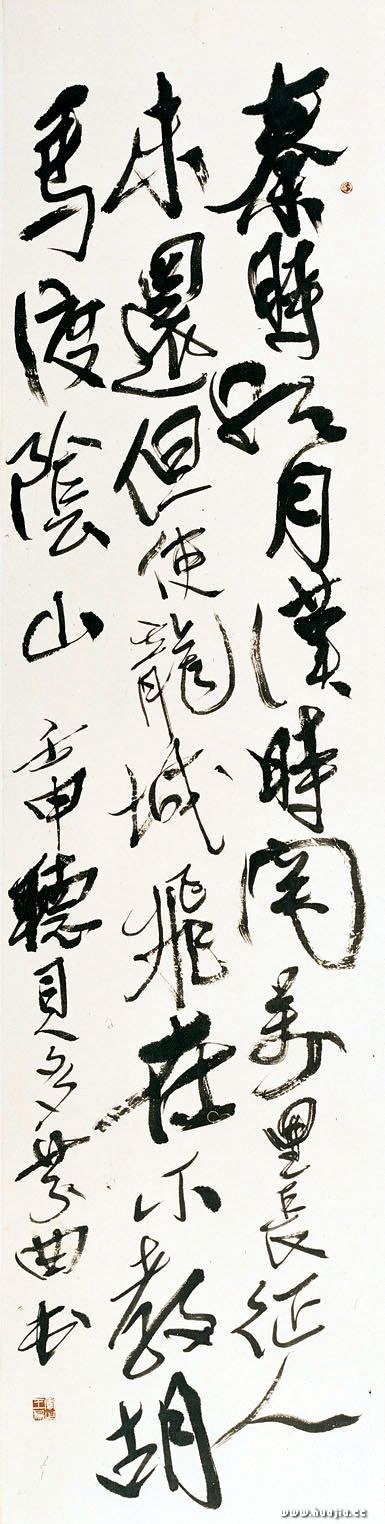 秦時明月漢時關萬里長征人
未還但使龍城飛在不教胡
馬渡陰山 壬申聽書
www.huajia.cc